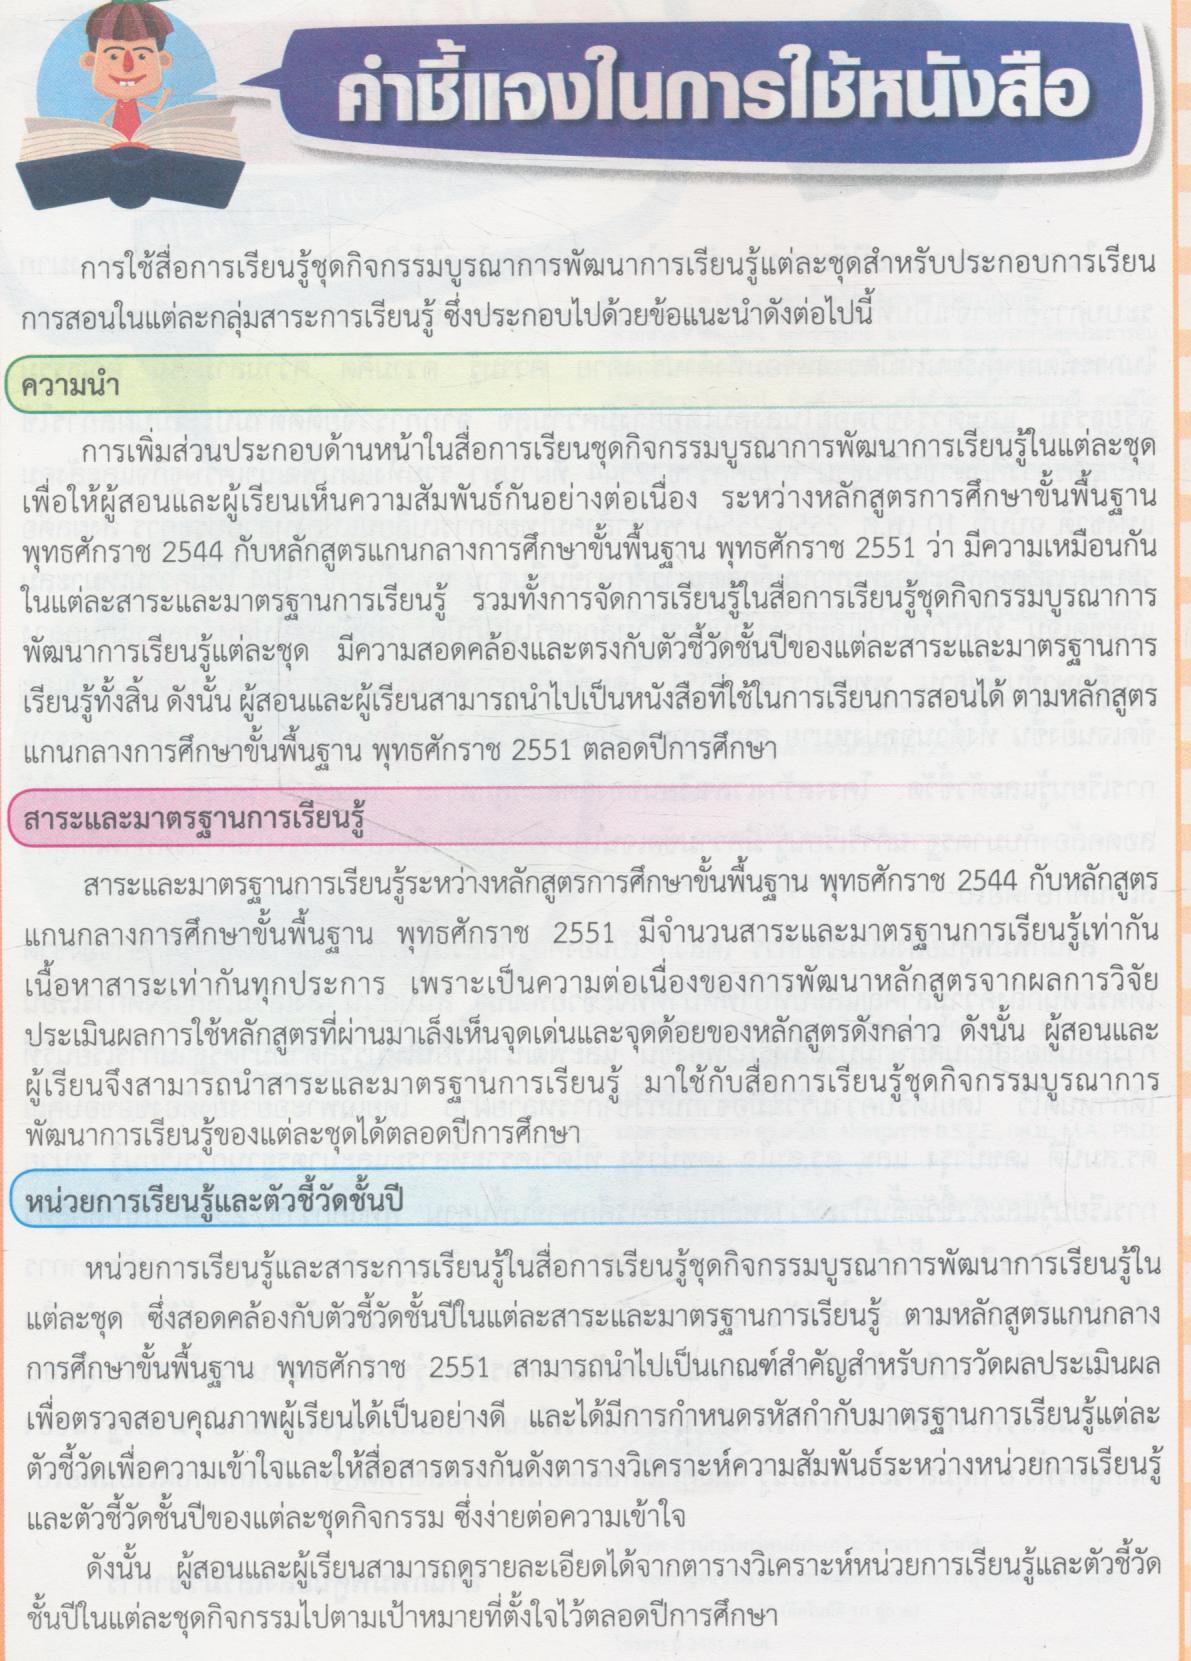 คำชี้แจงในการใช้หนังสือ
การใช้สื่อการเรียนรู้ชุดกิจกรรมบูรณาการพัฒนาการเรียนรู้แต่ละชุดสำหรับประกอบการเรียน
การสอนในแต่ละกลุ่มสาระการเรียนรู้ ซึ่งประกอบไปด้วยข้อแนะนำดังต่อไปนี้
ความนำ
การเพิ่มส่วนประกอบด้านหน้าในสื่อการเรียนชุดกิจกรรมบูรณาการพัฒนาการเรียนรู้ในแต่ละชุด
เพื่อให้ผู้สอนและผู้เรียนเห็นความสัมพันธ์กันอย่างต่อเนื่อง ระหว่างหลักสูตรการศึกษาขั้นพื้นฐาน
พุทธศักราช 2544 กับหลักสูตรแกนกลางการศึกษาขั้นพื้นฐาน พุทธศักราช 2551 ว่า มีความเหมือนกัน
ในแต่ละสาระและมาตรฐานการเรียนรู้ รวมทั้งการจัดการเรียนรู้ในสื่อการเรียนรู้ชุดกิจกรรมบูรณาการ
พัฒนาการเรียนรู้แต่ละชุด มีความสอดคล้องและตรงกับตัวชี้วัดชั้นปีของแต่ละสาระและมาตรฐานการ
เรียนรู้ทั้งสิ้น ดังนั้น ผู้สอนและผู้เรียนสามารถนำไปเป็นหนังสือที่ใช้ในการเรียนการสอนได้ ตามหลักสูตร
แกนกลางการศึกษาขั้นพื้นฐาน พุทธศักราช 2551 ตลอดปีการศึกษา
สาระและมาตรฐานการเรียนรู้
สาระและมาตรฐานการเรียนรู้ระหว่างหลักสูตรการศึกษาขั้นพื้นฐาน พุทธศักราช 2544 กับหลักสูตร
แกนกลางการศึกษาขั้นพื้นฐาน พุทธศักราช 2551 มีจำนวนสาระและมาตรฐานการเรียนรู้เท่ากัน
เนื้อหาสาระเท่ากันทุกประการ เพราะเป็นความต่อเนื่องของการพัฒนาหลักสูตรจากผลการวิจัย
ประเมินผลการใช้หลักสูตรที่ผ่านมาเล็งเห็นจุดเด่นและจุดด้อยของหลักสูตรดังกล่าว ดังนั้น ผู้สอนและ
ผู้เรียนจึงสามารถนำสาระและมาตรฐานการเรียนรู้ มาใช้กับสื่อการเรียนรู้ชุดกิจกรรมบูรณาการ
พัฒนาการเรียนรู้ของแต่ละชุดได้ตลอดปีการศึกษา
หน่วยการเรียนรู้และตัวชี้วัดชั้นปี
หน่วยการเรียนรู้และสาระการเรียนรู้ในสื่อการเรียนรู้ชุดกิจกรรมบูรณาการพัฒนาการเรียนรู้ใน
แต่ละชุด ซึ่งสอดคล้องกับตัวชี้วัดชั้นปีในแต่ละสาระและมาตรฐานการเรียนรู้ ตามหลักสูตรแกนกลาง
การศึกษาขั้นพื้นฐาน พุทธศักราช 2551 สามารถนำไปเป็นเกณฑ์สำคัญสำหรับการวัดผลประเมินผล
เพื่อตรวจสอบคุณภาพผู้เรียนได้เป็นอย่างดี และได้มีการกำหนดรหัสกำกับมาตรฐานการเรียนรู้แต่ละ
ตัวชี้วัดเพื่อความเข้าใจและให้สื่อสารตรงกันดังตารางวิเคราะห์ความสัมพันธ์ระหว่างหน่วยการเรียนรู้
และตัวชี้วัดชั้นปีของแต่ละชุดกิจกรรม ซึ่งง่ายต่อความเข้าใจ
ดังนั้น ผู้สอนและผู้เรียนสามารถดูรายละเอียดได้จากตารางวิเคราะห์หน่วยการเรียนรู้และตัวชี้วัด
ชั้นปีในแต่ละชุดกิจกรรมไปตามเป้าหมายที่ตั้งใจไว้ตลอดปีการศึกษา